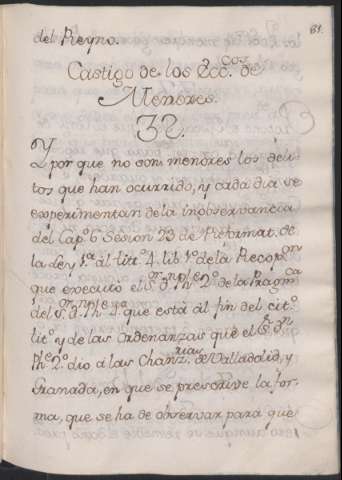 81.
del Reyno.
Castigo de los Ecc.cos de
Menores.
32.
Y por que no son menores los deli-
tos que han ocurrido, y cada dia se
experimentan de la inobservancia
del Cap.o 6 Sesion 23 de Reformat. de
la Ley 1.a del titt.o 4. lib. 1.o de la Recop.on
que executò el S.or D.n Phe 2.o de la Pragm.ca
del S.or D.n Phe 4.o que està al fin del cit.o
tit.o y de las ordenanzas que el S.r D.n
Phe 2.o dio a las Chanz.rias de Valladolid, y
Granada, en que se prescrive la for-
ma, que se ha de observar para que